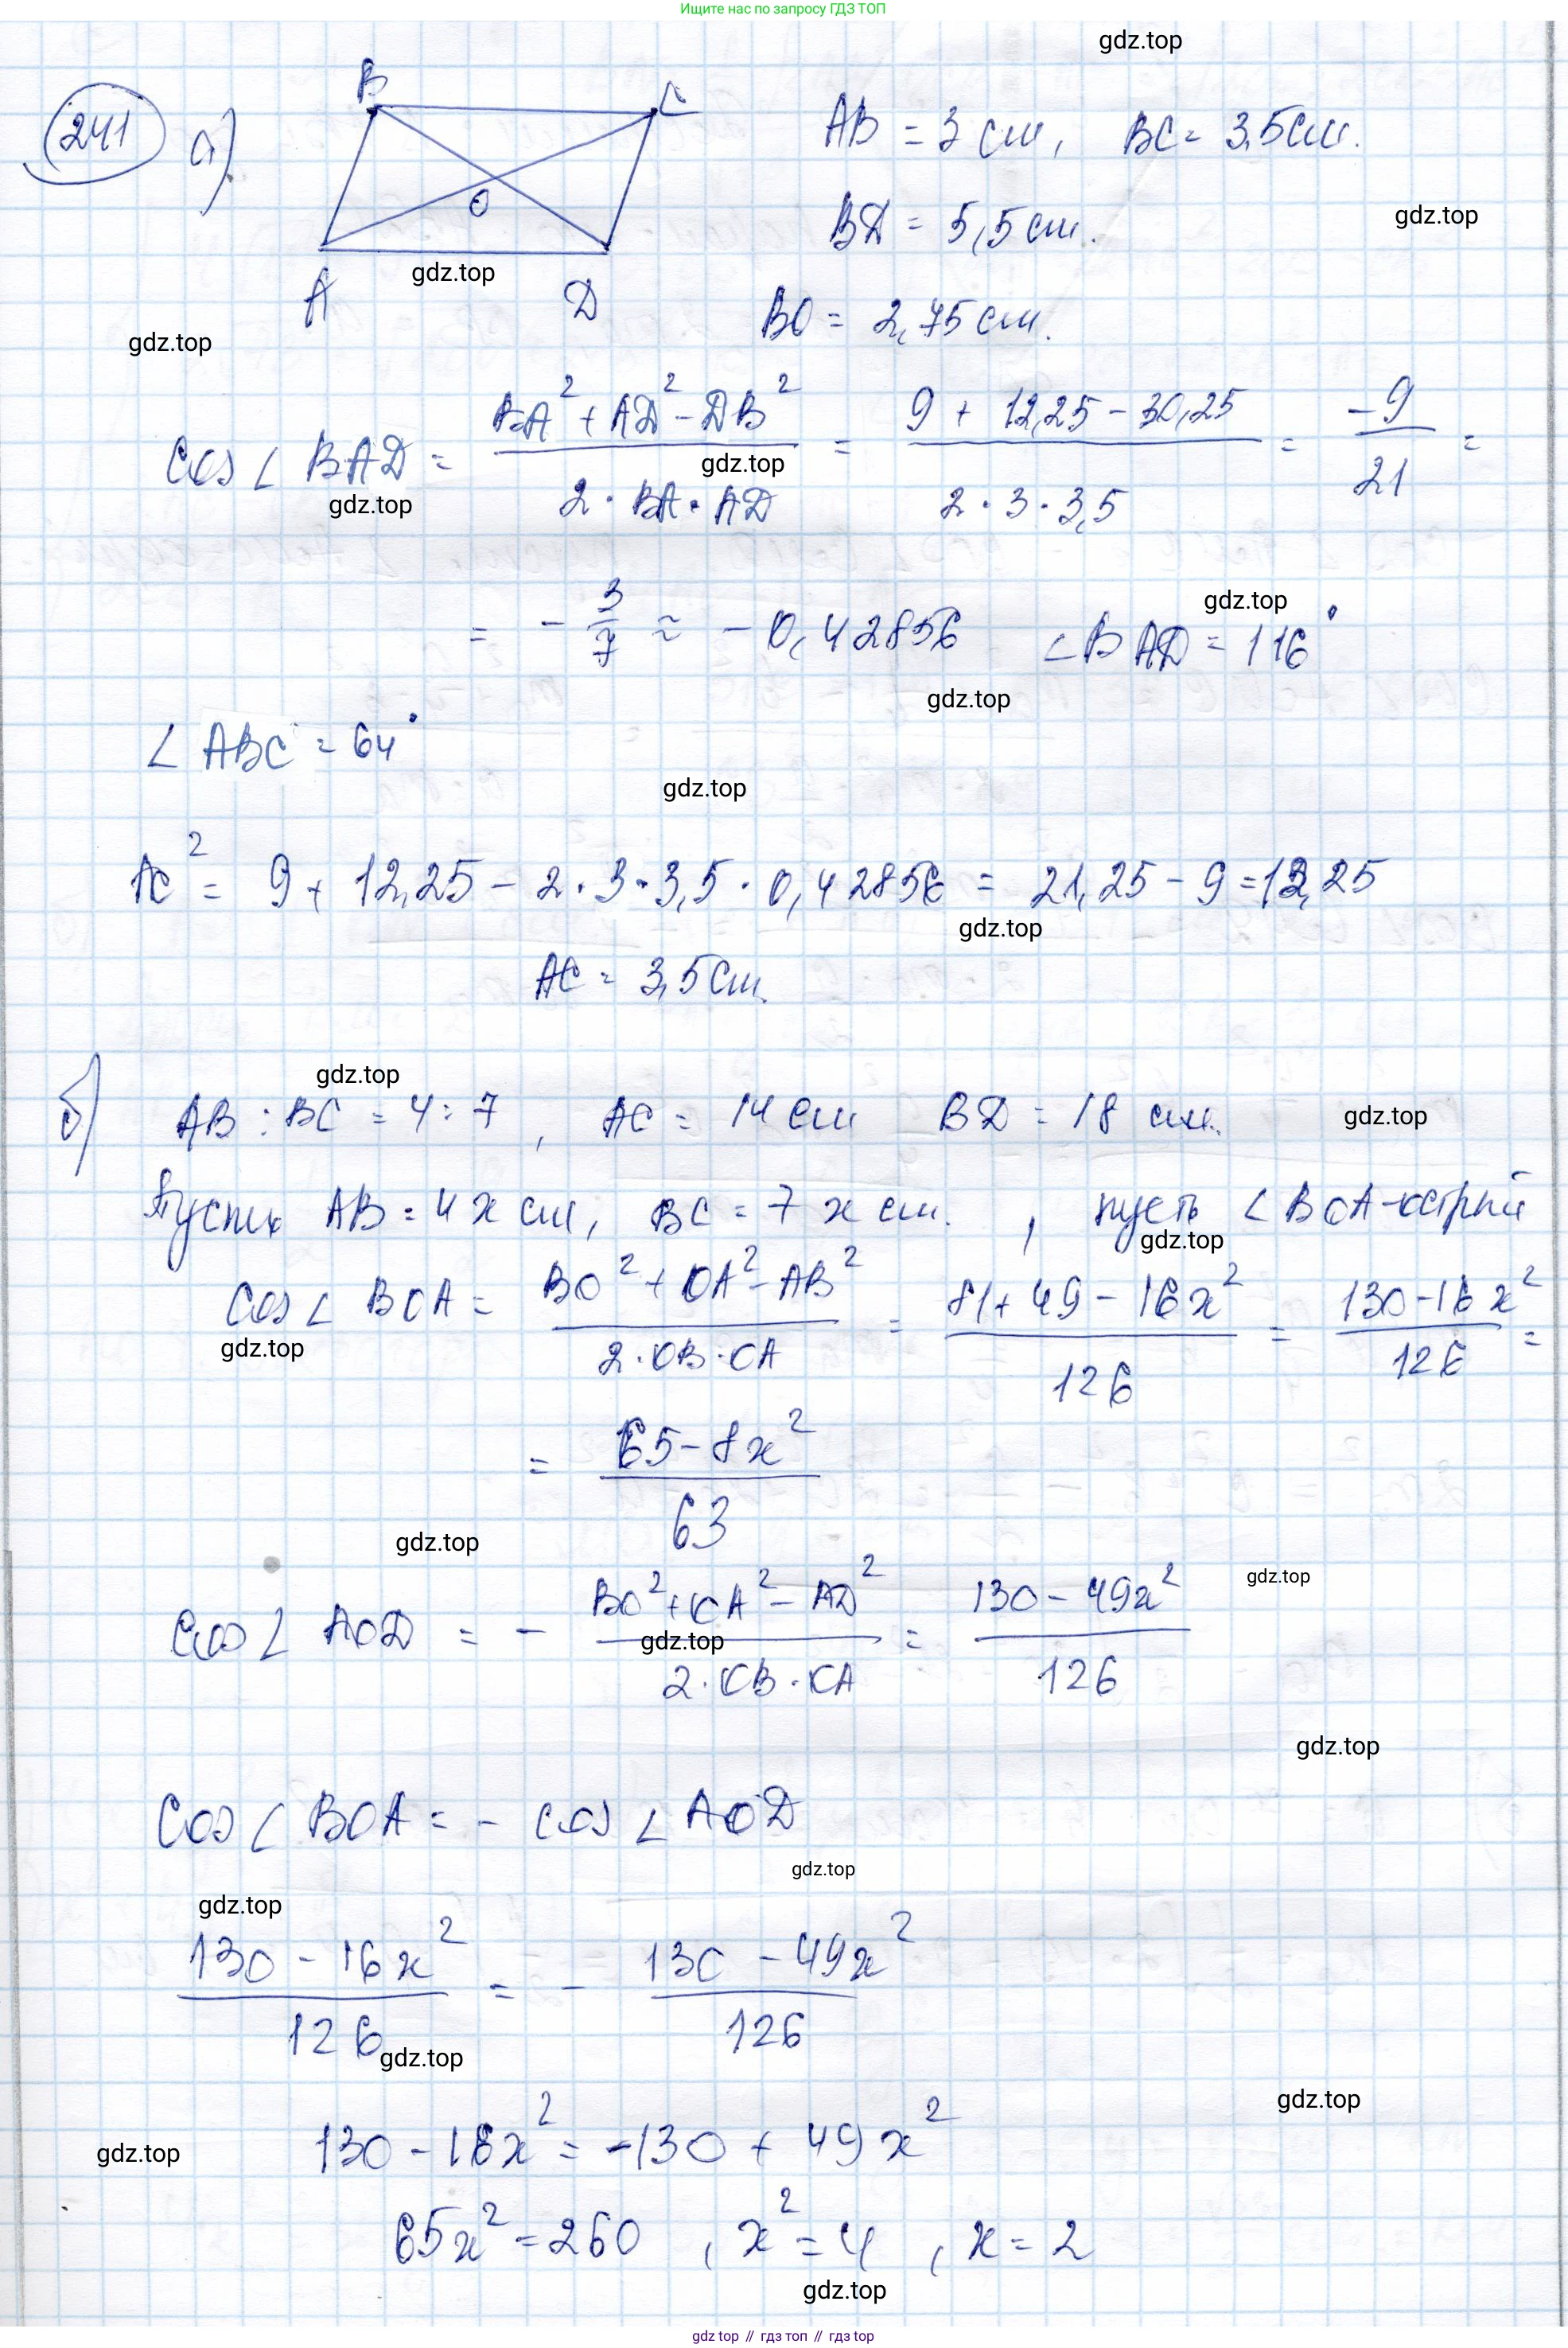 Ищите нас по запросу ГДЗ ТОП
gdz.top
241 а)
B C
O
A D
AB = 3 см, BC = 3,5 см.
gdz.top
BD = 5,5 см.
gdz.top
BO = 2,75 см.
gdz.top
cos ∠ BAD = (BA² + AD² - DB²) / (2 · BA · AD) = (9 + 12,25 - 30,25) / (2 · 3 · 3,5) = -9/21 =
gdz.top
gdz.top
= - 3/7 ≈ - 0,42856 ∠BAD = 116°
gdz.top
gdz.top
∠ ABC = 64°
gdz.top
AC² = 9 + 12,25 - 2 · 3 · 3,5 · 0,42856 = 21,25 - 9 = 12,25
gdz.top
AC = 3,5 см.
gdz.top
б) AB : BC = 4 : 7, AC = 14 см BD = 18 см.
gdz.top
Пусть AB = 4x см, BC = 7x см., пусть ∠BOA-острый
gdz.top
cos ∠ BOA = (BO² + OA² - AB²) / (2 · OB · OA) = (81 + 49 - 16x²) / 126 = (130 - 16x²) / 126 =
gdz.top
= (65 - 8x²) / 63
gdz.top
gdz.top
cos ∠ AOD = - (BO² + OA² - AD²) / (2 · OB · OA) = (130 - 49x²) / 126
gdz.top
gdz.top
cos ∠ BOA = - cos ∠ AOD
gdz.top
gdz.top
(130 - 16x²) / 126 = - (130 - 49x²) / 126
gdz.top
gdz.top
130 - 16x² = -130 + 49x²
gdz.top
65x² = 260, x² = 4, x = 2
gdz.top
gdz.top // гдз топ // гдз top